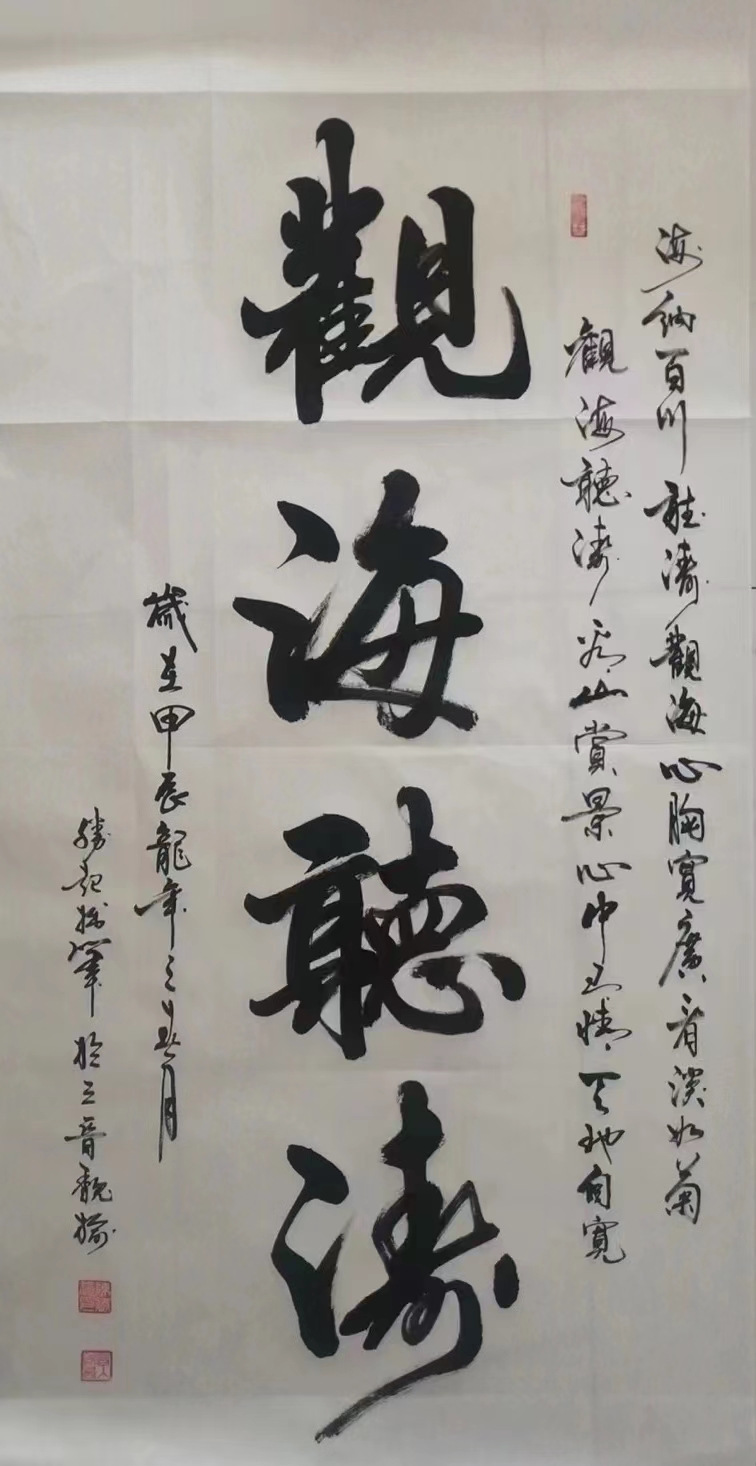 海納百川聽濤觀海心胸寬廣看淡如菊
觀海聽濤 山賞景心中 情天地自寬
觀海聽濤
歲在甲辰龍年之 月
勝 筆於三晉 榆